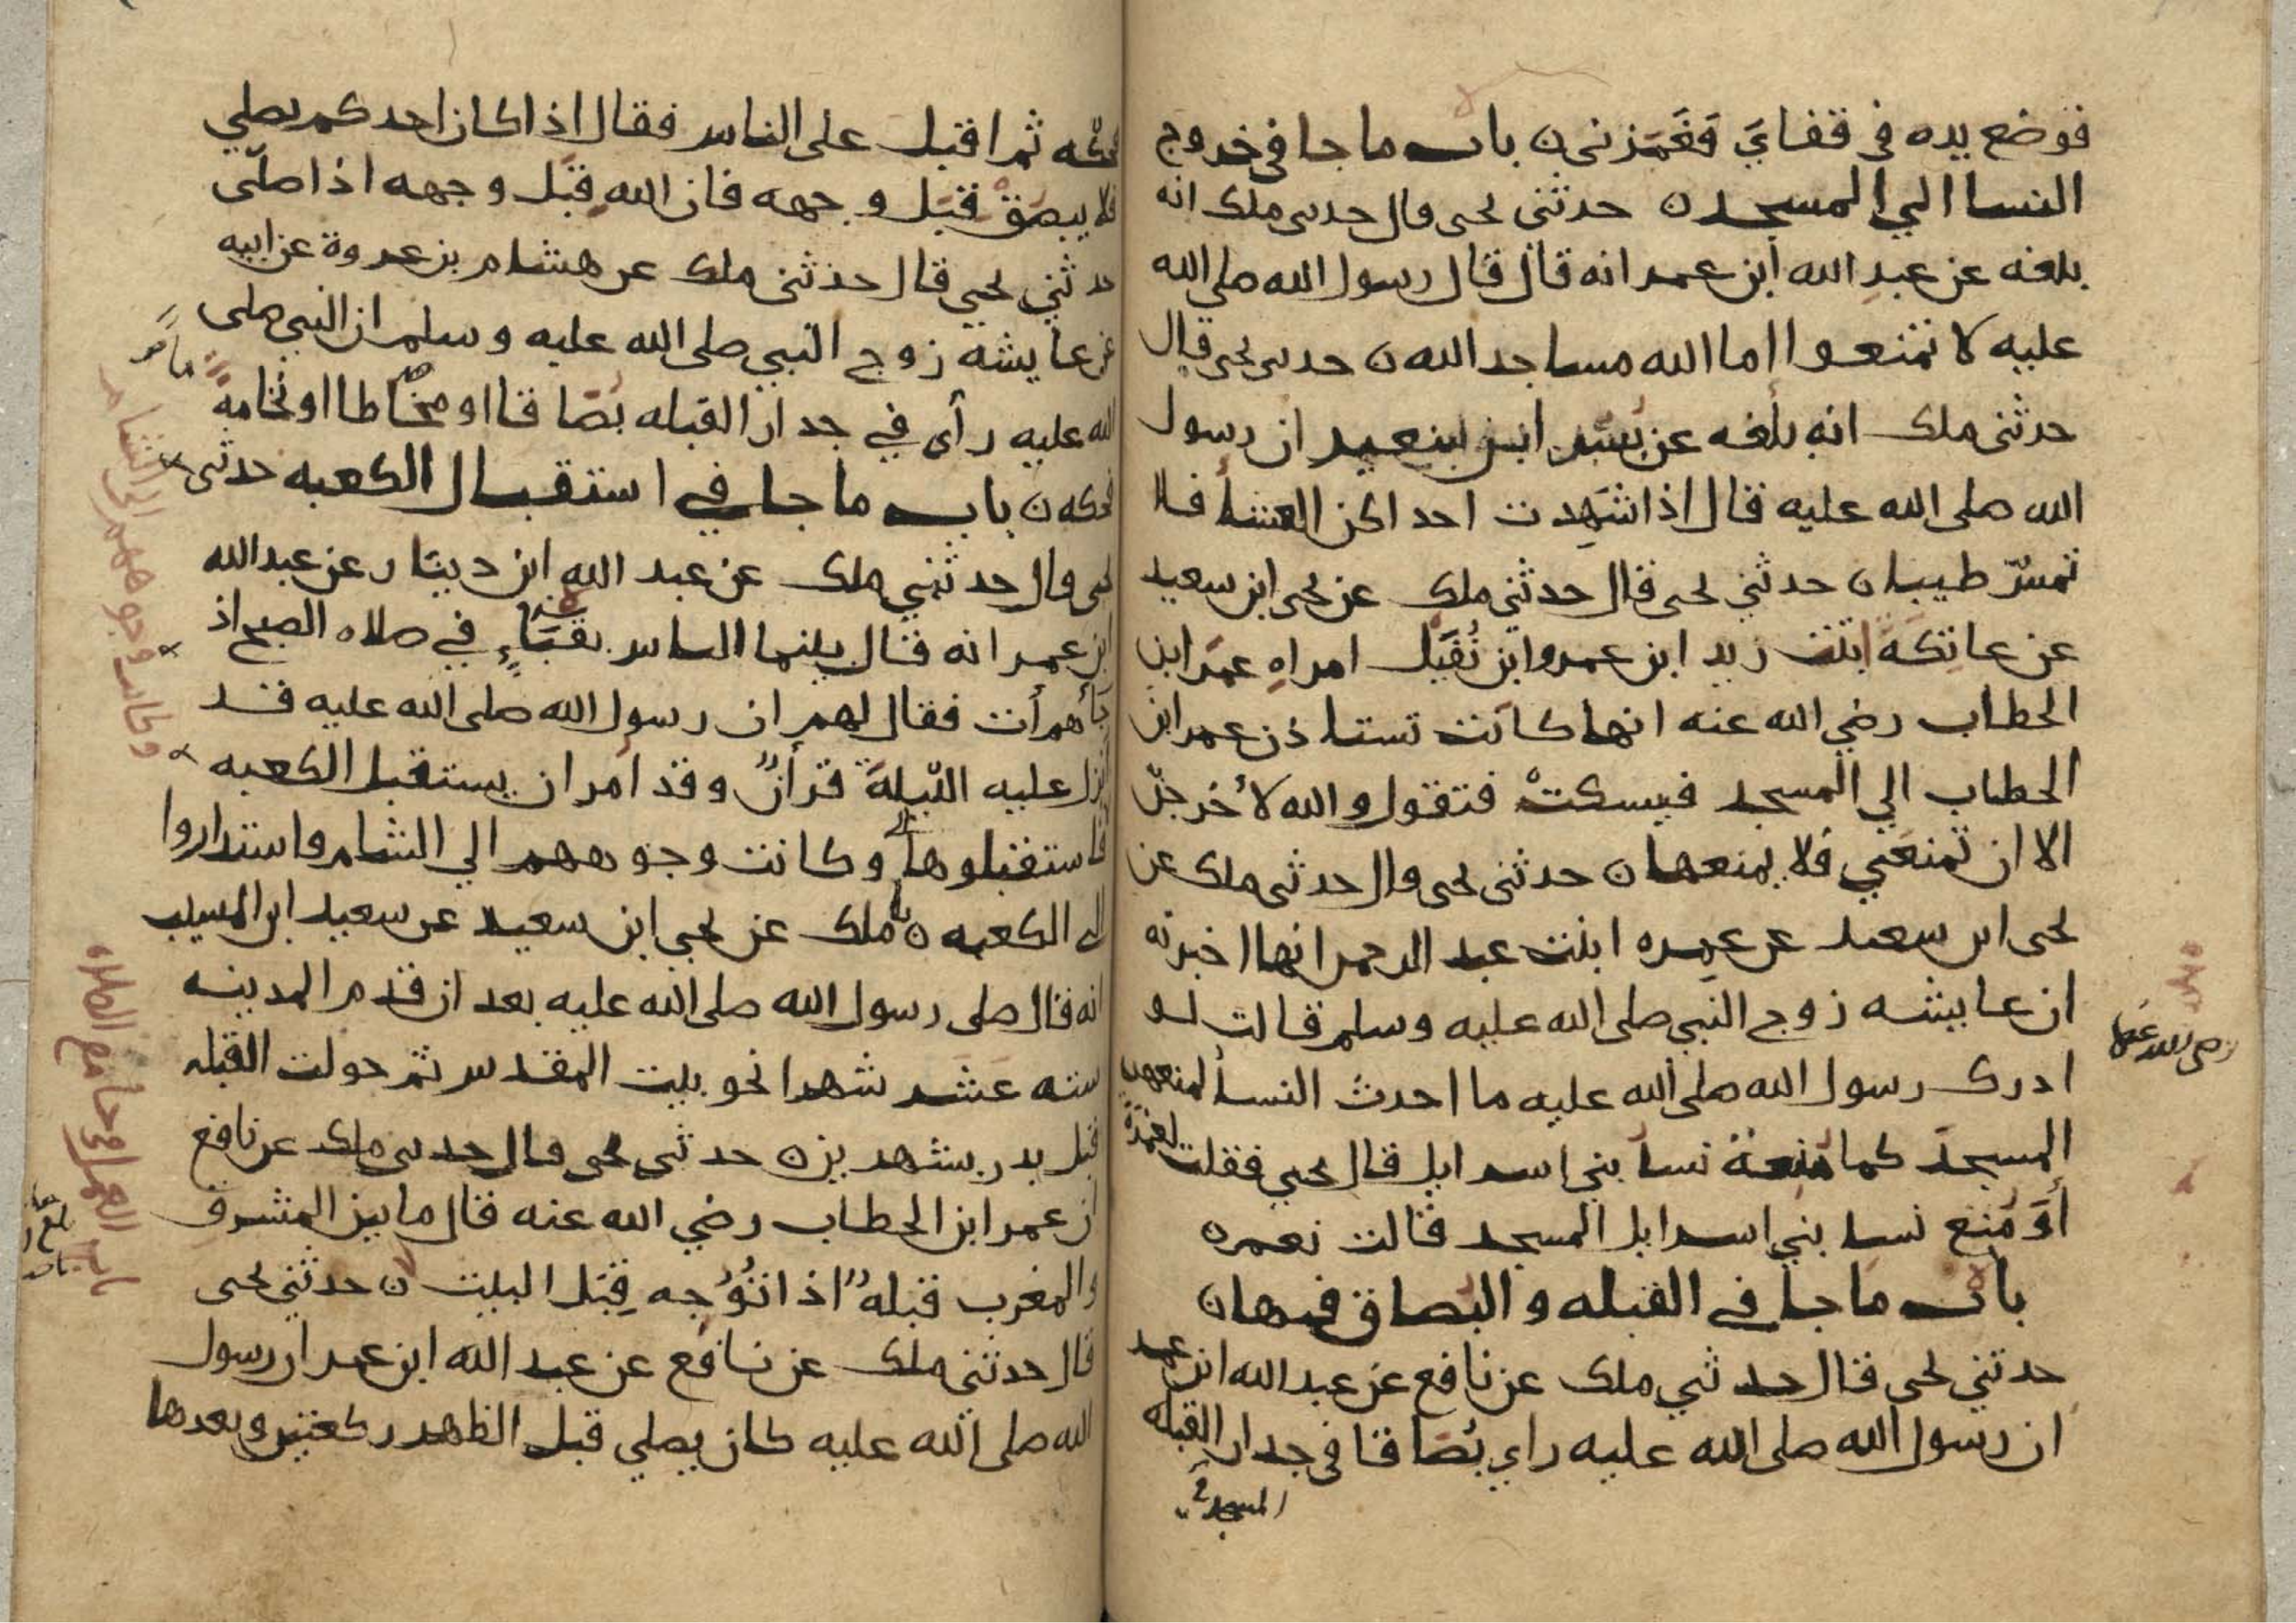 فوضع يده في قفاي فغمزني ن باب ما جا في خروج
النسا الي المسجد ن حدثني يحيى قال حدثني ملك انه
بلغه عن عبد الله ابن عمر انه قال قال رسول الله صلى الله
عليه لا تمنعوا اما الله مساجد الله ن حدثني يحيى قال
حدثني ملك انه بلغه عن بسر ابن سعيد ان رسول
الله صلى الله عليه قال اذا شهدت احداكن العشا فلا
تمسن طيبا ن حدثني يحيى قال حدثني ملك عن يحيى ابن سعيد
عن عاتكة ابنت زيد ابن عمرو ابن نفيل امراه عمر ابن
الخطاب رضي الله عنه انها كانت تستاذن عمر ابن
الخطاب الي المسجد فيسكت فتقول والله لأخرجن
الا ان تمنعني فلا يمنعها ن حدثني يحيى قال حدثني ملك عن
يحيى ابن سعيد عن عمره ابنت عبد الرحمن انها اخبرته
ان عايشه زوج النبي صلى الله عليه وسلم قالت لو
رضي الله عنها
ادرك رسول الله صلى الله عليه ما احدث النسا لمنعهن
المسجد كما منعه نسا بني اسرايل قال يحيى فقلت لعمرة
أو منع نسا بني اسرايل المسجد قالت نعم ن
باب ما جا في القبله والبصاق فيها ن
حدثني يحيى قال حدثني ملك عن نافع عن عبد الله ابن عمر
ان رسول الله صلى الله عليه راي بصاقا في جدار القبلة
المسجد
فحكه ثم اقبل على الناس فقال اذا كان احدكم يصلي
فلا يبصق قبل وجهه فان الله قبل وجهه اذا صلى
حدثني يحيى قال حدثني ملك عن هشام بن عروة عن ابيه
عن عايشه زوج النبي صلى الله عليه وسلم ان النبي صلى
الله عليه رأى في جدار القبله بصاقا او مخاطا او نخامة
فحكه ن باب ما جا في استقبال الكعبه حدثني
يحيى قال حدثني ملك عن عبد الله ابن دينار عن عبد الله
ابن عمر انه قال بينما الناس بقباء في صلاه الصبح اذ
جأهم أت فقال لهم ان رسول الله صلى الله عليه قد
انزل عليه الليلة قرأن وقد أمر ان يستقبل الكعبه
فاستقبلوها وكانت وجوههم الي الشام واستداروا
الى الكعبه ن ملك عن يحيى ابن سعيد عن سعيد ابن المسيب
انه قال صلى رسول الله صلى الله عليه بعد ان قدم المدينه
سته عشر شهرا نحو بيت المقدس ثم حولت القبله
قبل بدر بشهرين ن حدثني يحيى قال حدثني ملك عن نافع
ان عمر ابن الخطاب رضي الله عنه قال ما بين المشرق
والمغرب قبلة اذا تُوُجه قِبَل البيت ن حدثني يحيى
قال حدثني ملك عن نافع عن عبد الله ابن عمر ان رسول
الله صلى الله عليه كان يصلي قبل الظهر ركعتين وبعدها
وكانت وجوههم الى الشام
باب العمل في جامع الصلاه